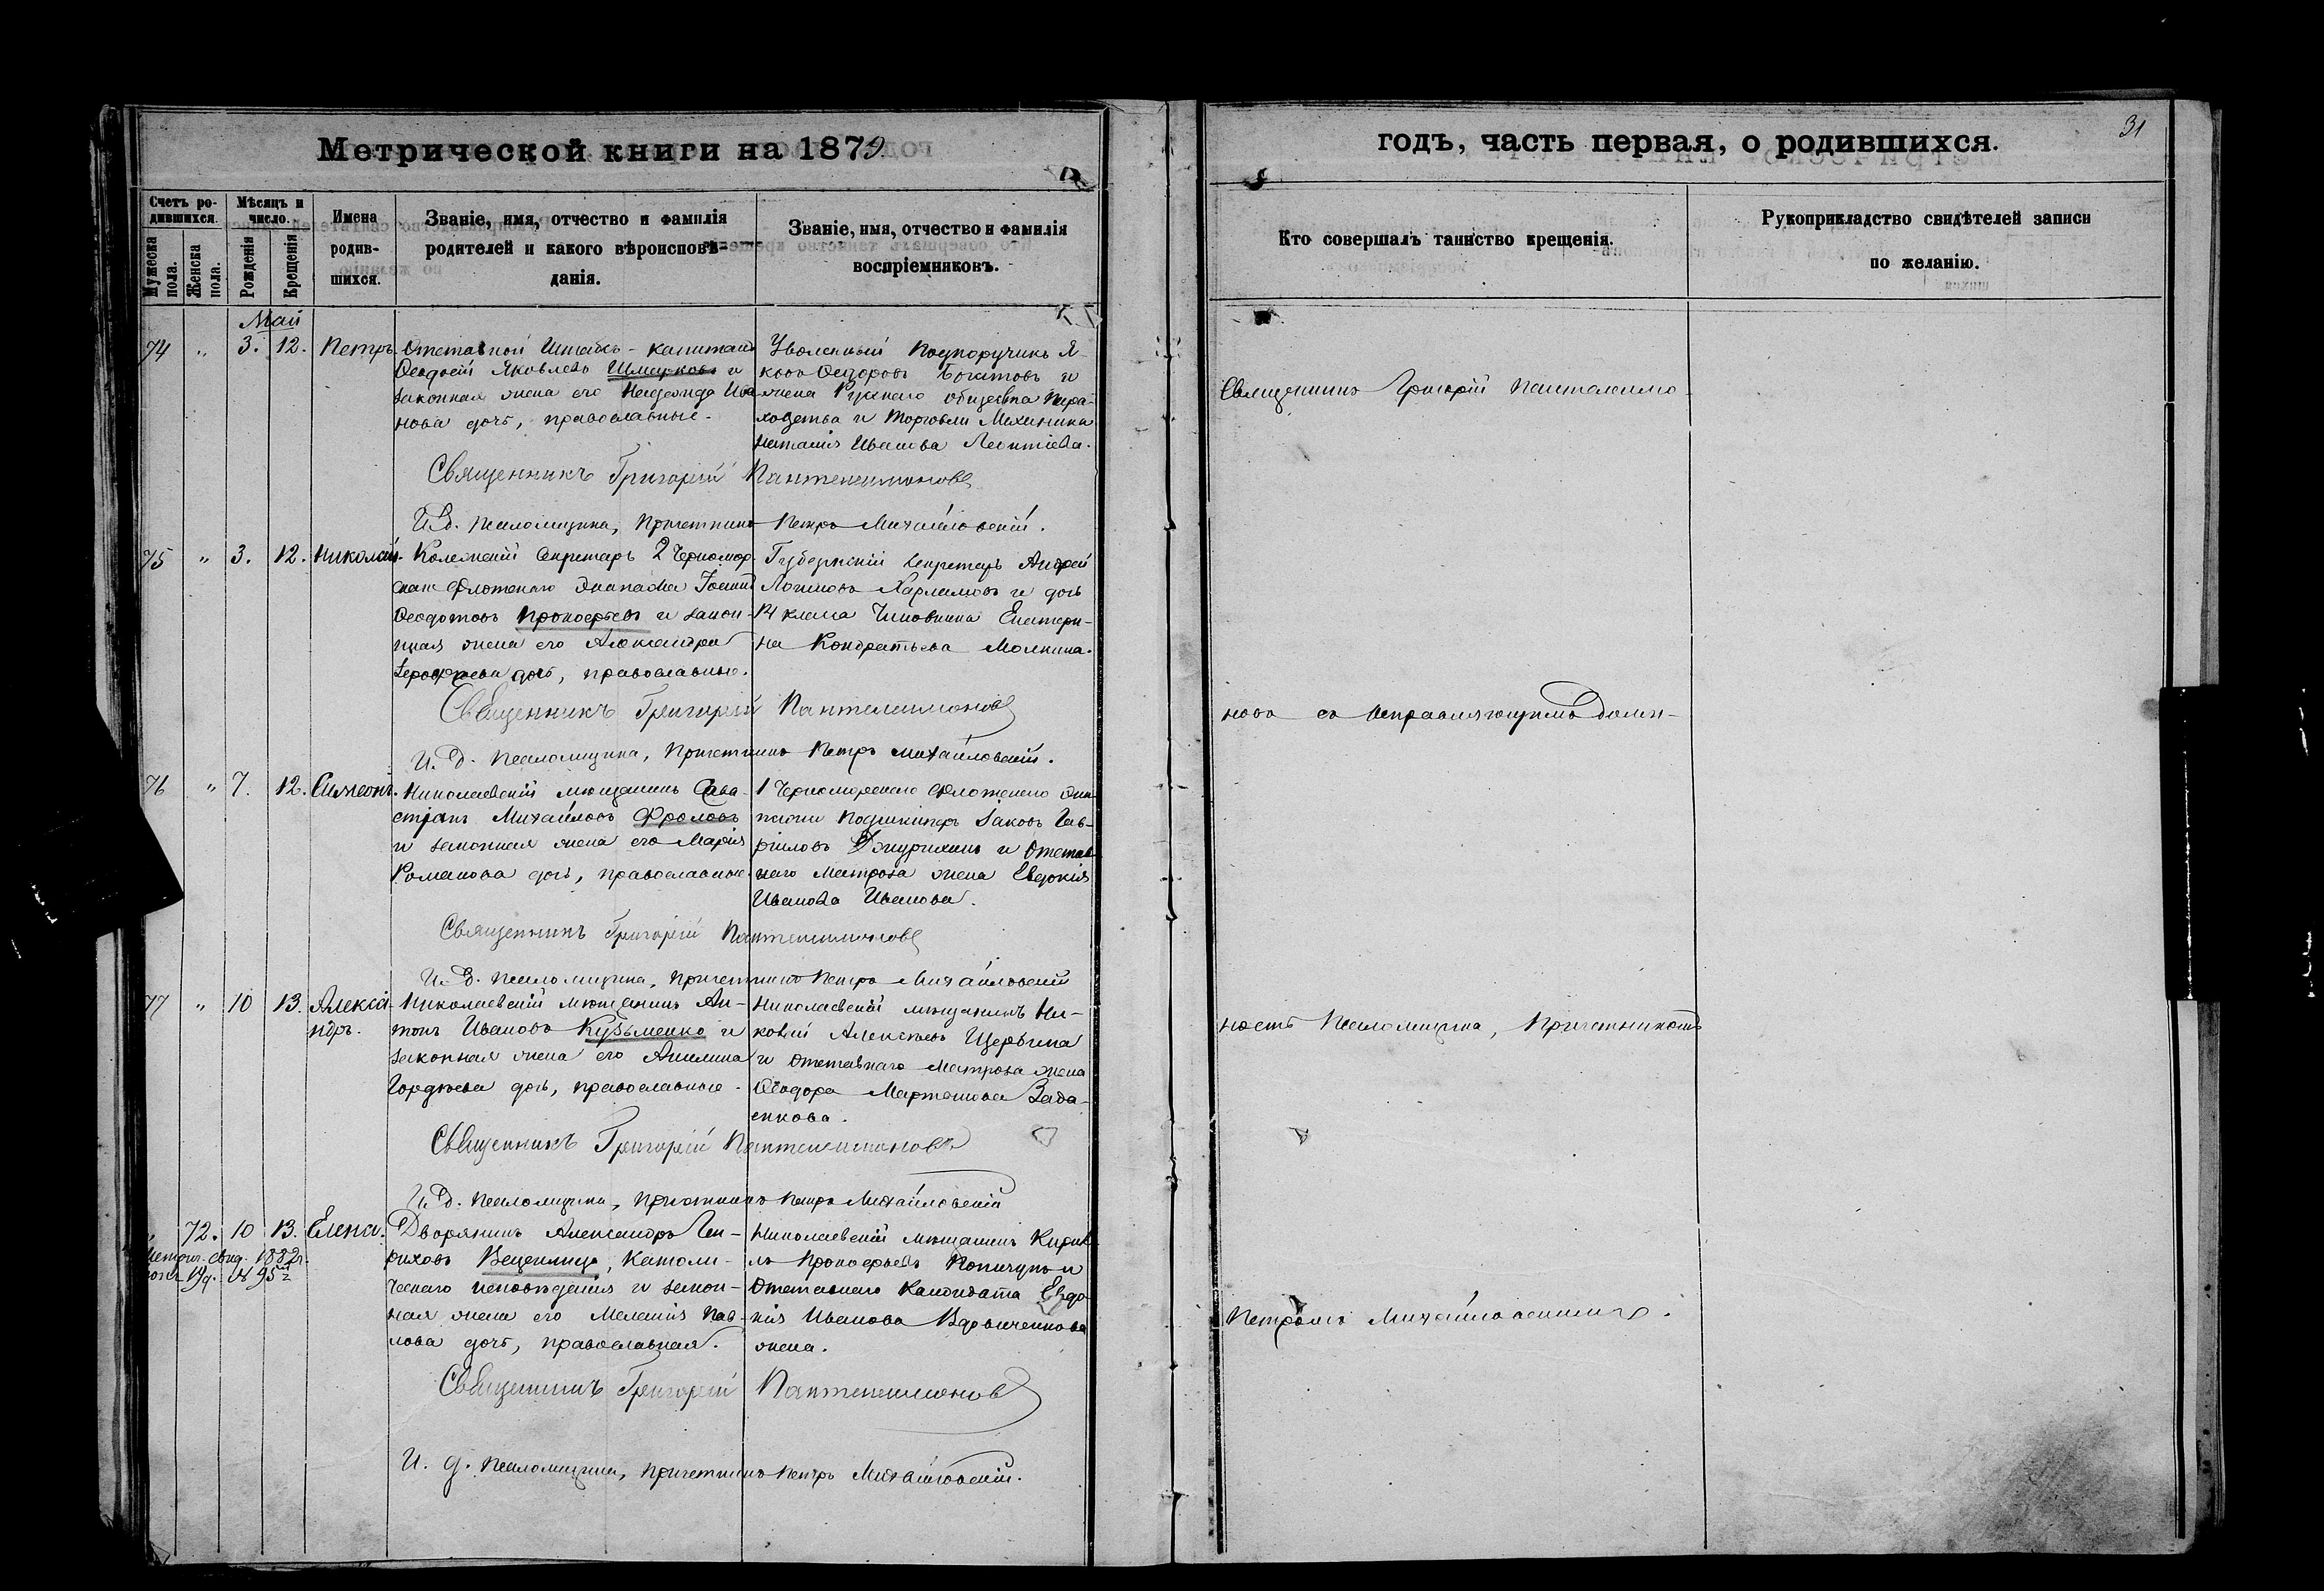 Метрической книги на 1879
годъ, часть первая, о родившихся.
31
Счетъ ро-
дившихся.
Мужеска пола.
Женска пола.
Мѣсяцъ и
число.
Рожденія
Крещенія
Имена
родив-
шихся.
Званіе, имя, отчество и фамилія
родителей и какого вѣроисповѣ-
данія.
Званіе, имя, отчество и фамилія
воспріемниковъ.
Кто совершалъ таинство крещенія.
Рукоприкладство свидѣтелей записи
по желанію.
Май
74 " 3. 12. Петръ.
Отставной Штабсъ-капитанъ
Ѳеодосій Яковлевъ и
законная жена его Надежда Ива-
нова дочь, православные.
Уволенный Подпоручикъ Я-
ковъ Ѳедоровъ Богатовъ и
жена Русскаго общества Паро-
ходства и Торговли Механика
Наталія Иванова Леонтіева.
Священникъ Григорій Пантелеимоновъ
И.д. Псаломщика, Причетникъ Петръ Михайловскій.
75 " 3. 12. Николай.
Колежскій Секретарь 2 Черномор-
скаго Флотскаго Экипажа Іоаннъ
Ѳеодотовъ Прокофьевъ и закон-
ная жена его Александра
дочь, православные.
Губернскій Секретарь Андрей
Логиновъ Харламовъ и дочь
14 класа Чиновника Екатери-
на Кондратьева Молкина.
Священникъ Григорій Пантелеимоновъ
И.д. Псаломщика, Причетникъ Петръ Михайловскій.
76 " 7. 12. Симеонъ.
Николаевскій мѣщанинъ Сева-
стіянъ Михайловъ Фроловъ
и законная жена его Марія
Романова дочь, православные.
1 Черноморскаго Флотскаго Эки-
пажа Подшкиперъ Іаковъ Гав-
риловъ и Отстав-
наго Матроза жена Евдокія
Иванова Иванова.
Священникъ Григорій Пантелеимоновъ
И.д. Псаломщика, Причетникъ Петръ Михайловскій
77 " 10 13. Алекса-
ндръ.
Николаевскій мѣщанинъ Ан-
тонъ Ивановъ Кузьменко и
законная жена его Акилина
Гордѣева дочь, православные.
Николаевскій мѣщанинъ Ни-
колай Алексѣевъ Щербина
и Отставнаго Матроза жена
Ѳеодора Мартынова Зада-
енкова.
Священникъ Григорій Пантелеимоновъ
И.д. Псаломщика, Причетникъ Петръ Михайловскій
72. 10 13. Елена.
Метрич. свид. 1882 г.
№ 95
Дворянинъ Александръ Ген-
риховъ, Католи-
ческаго исповѣданія и закон-
ная жена его Меланія Пав-
лова дочь, православная.
Николаевскій мѣщанинъ Кирил-
лъ Прокофьевъ и
Отставнаго Кандидата Евдо-
кія Иванова Вдовиченкова
жена.
Священникъ Григорій Пантелеимоновъ
И. д. Псаломщика, Причетникъ Петръ Михайловскій.
Священникъ Григорій Пантелеимо-
новъ съ исправляющимъ долж-
ность Псаломщика, Причетникомъ
Петромъ Михайловскимъ.